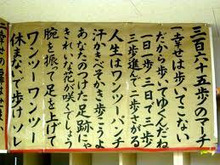 三百六十五歩のマーチ
一幸せは歩いてこない
だから歩いてゆくんだね
一日一歩三日で三歩
三歩進んで二歩さがる
人生はワンツーパンチ
汗かきべそかき歩こうよ
あなたのつけた足跡にゃ
きれいな花が咲くでしょう
腕を振って足を上げて
ワンツーワンツー
休まないで歩けソレ